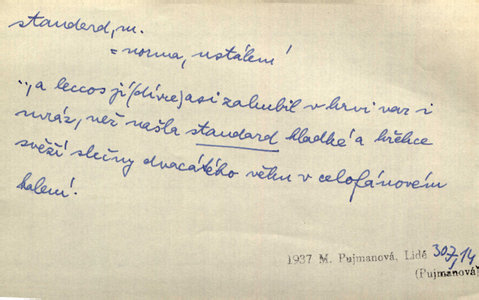 standard, m.
= norma, ustálení
"., a leccos jí (dívce) asi zahubil v krvi var i
mráz, než našla standard hladké a křehce
svěží slečny dvacátého věku v celofánovém
balení.
1937 M. Pujmanová, Lidé 307,14
(Pujmanová)